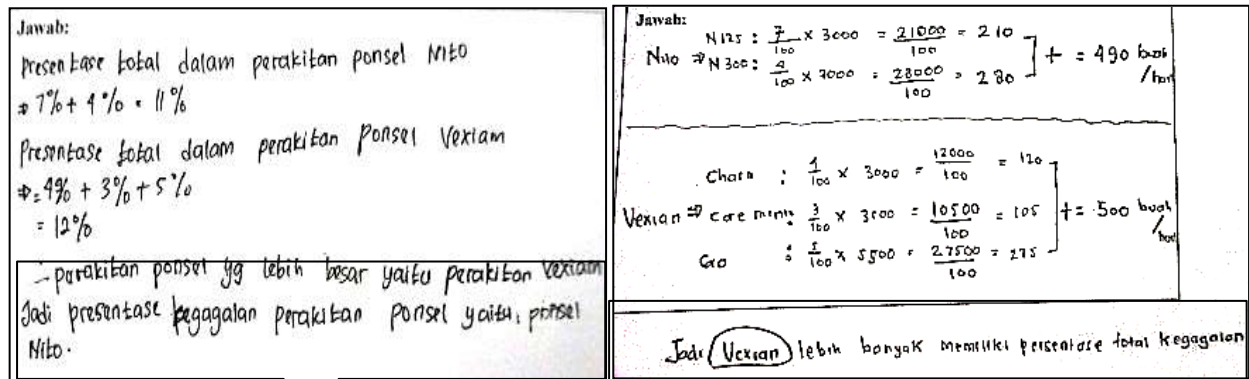 Jawab:
Presentase total dalam perakitan ponsel Nito
⇒ 7% + 4% = 11%
Presentase total dalam perakitan ponsel Vexiam
⇒ = 4% + 3% + 5%
= 12%
∴ perakitan ponsel yg lebih besar yaitu perakitan Vexiam
Jadi presentase kegagalan perakitan ponsel yaitu, ponsel
Nito.
Jawab:
N125 : 7/100 x 3000 = 21000/100 = 210
Nito ⇒ N300 : 4/100 x 7000 = 28000/100 = 280 + = 490 buah
/hari
: 4/100 x 3000 = 12000/100 = 120
Vexian ⇒ : 3/100 x 3500 = 10500/100 = 105 + = 500 buah
/hari
Go : 5/100 x 5500 = 27500/100 = 275
Jadi Vexian lebih banyak memiliki persentase total kegagalan